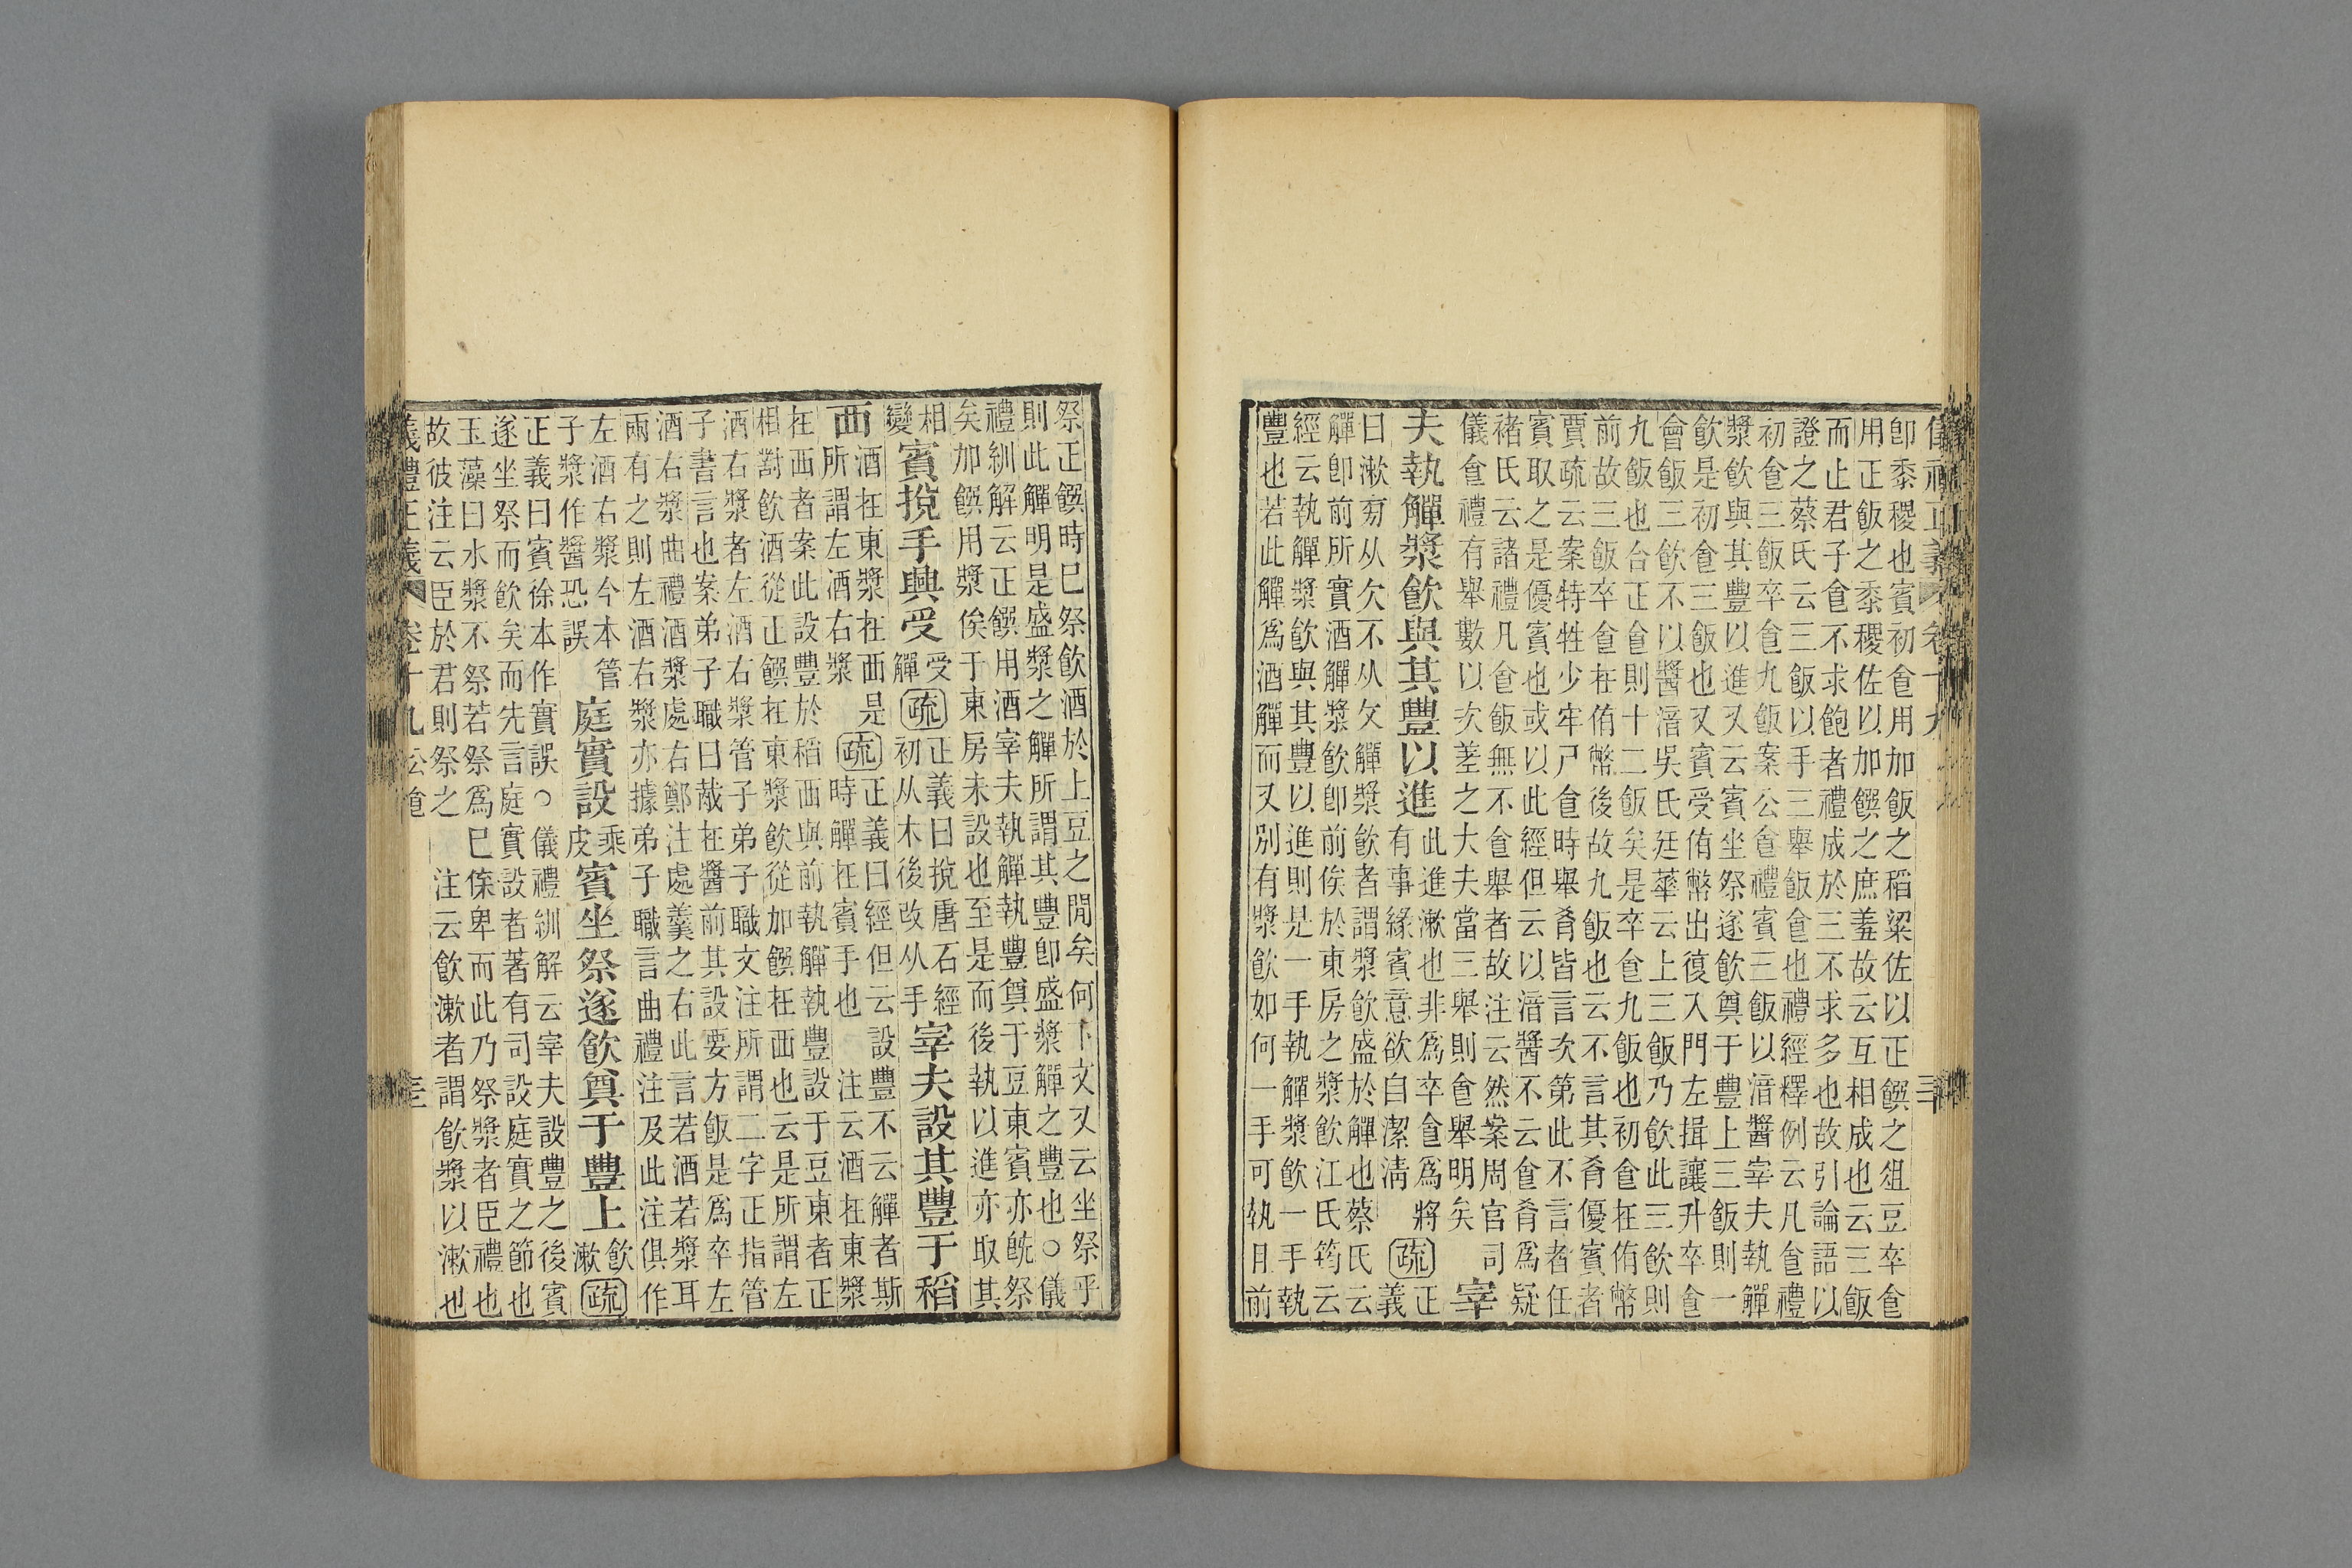 卽黍稷也賓初食用加飯之稻粱佐以正饌之俎豆卒食
用正飯之黍稷佐以加饌之庶羞故云互相成也云三飯
而止君子食不求飽者禮成於三不求多也故引論語以
證之蔡氏云三飯以手三舉飯食也禮經釋例云凡食禮
初食三飯卒食九飯案公食禮賓三飯以湆醬宰夫執觶
漿飲與其豐以進又云賓坐祭遂飲奠于豐上三飯則一
飲是初食三飯也又賓受侑幣出復入門左揖讓升卒食
會飯三飲不以醬湆吳氏廷華云上三飯乃飲此三飲則
九飯也台正食則十二飯矣是卒食九飯也初食在侑幣
前故三飯卒食在侑幣後故九飯也云不言其肴優賓者
賈疏云案特牲少牢尸食時舉肴皆言次第此不言者任
賓取之是優賓也或以此經但云以湆醬不云食肴爲疑
褚氏云諸禮凡食飯無不食舉者故注云然案周官司
儀食禮有舉數以次差之大夫當三舉則食舉明矣 宰
夫執觶漿飲與其豐以進 此進漱也非爲卒食爲將有事緣賓意欲自潔淸 疏 正義
曰漱旁从欠不从攵觶漿飲者謂漿飲盛於觶也蔡氏云
觶卽前所實酒觶漿飲卽前俟於東房之漿飲江氏筠云
經云執觶漿飲與其豐以進則是一手執觶漿飲一手執
豐也若此觶爲酒觶而又別有漿飲如何一手可執且前
祭正饌時巳祭飲酒於上豆之閒矣何下文又云坐祭乎
則此觶明是盛漿之觶所謂其豐卽盛漿觶之豐也○儀
禮紃解云正饌用酒宰夫執觶執豐奠于豆東賓亦旣祭
矣加饌用漿俟于東房未設也至是而後執以進亦取其
相變 賓挩手興受 受觶 疏 正義曰挩唐石經初从木後改从手 宰夫設其豐于稻
西 酒在東漿在西是所謂左酒右漿 疏 正義曰經但云設豐不云觶者斯時觶在賓手也 注云酒在東漿
在西者案此設豐於稻西與前執觶執豐設于豆東者正
相對飲酒從正饌在東漿飲從加饌在西也云是所謂左
酒右漿者左酒右漿管子弟子職文注所謂二字正指管
子書言也案弟子職曰胾在醬前其設要方飯是爲卒左
酒右漿曲禮酒漿處右鄭注處羹之右此言若酒若漿耳
兩有之則左酒右漿亦據弟子職言曲禮注及此注俱作
左酒右漿今本管子漿作醬恐誤 庭實設 乘皮 賓坐祭遂飲奠于豐上 飲漱 疏
正義曰賓徐本作實誤○儀禮紃解云宰夫設豐之後賓
遂坐祭而飲矣而先言庭實設者著有司設庭實之節也
玉藻曰水漿不祭若祭爲巳傺卑而此乃祭漿者臣禮也
故彼注云臣於君則祭之 注云飲漱者謂飲漿以漱也
義禮正義 卷十九